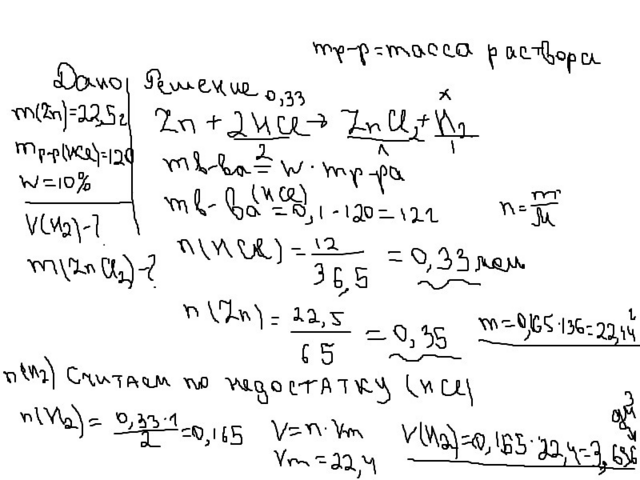 mр-р=масса раствора
Дано Решение
m(Zn)=22,5г
mр-р(HCl)=120
w=10%
V(H2)-?
m(ZnCl2)-?
0,33 x
Zn + 2HCl → ZnCl2 + H2
2 1 1
mв-ва = w · mр-ра
mв-ва(HCl) = 0,1·120=12г
n=m/M
n(HCl) = 12/36,5 = 0,33моль
n(Zn) = 22,5/65 = 0,35
m=0,165·136=22,44г
n(H2) Считаем по недостатку (HCl)
n(H2) = 0,33·1/2=0,165
V=n·Vm
Vm=22,4
V(H2)=0,165·22,4=3,696
дм3